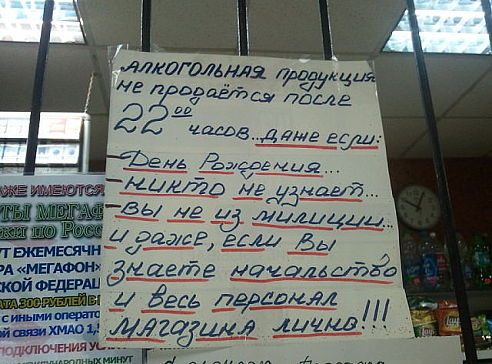 АЛКОГОЛЬНАЯ продукция
не продаётся после
22⁰⁰ часов... даже если:
- День Рождения...
- никто не узнает...
- вы не из милиции...
и даже, если Вы
знаете начальство
и весь персонал
магазина лично!!!
ЖЕ ИМЕЮТСЯ
ТЫ МЕГАФ
ки по Росс
УТ ЕЖЕМЕСЯЧН
РА «МЕГАФОН»
СКОЙ ФЕДЕРАЦ
АТА 300 РУБЛЕЙ В
с иными операто
й связи ХМАО 1,5
ПОДКЛЮЧЕНИЯ УС
МИНУТ